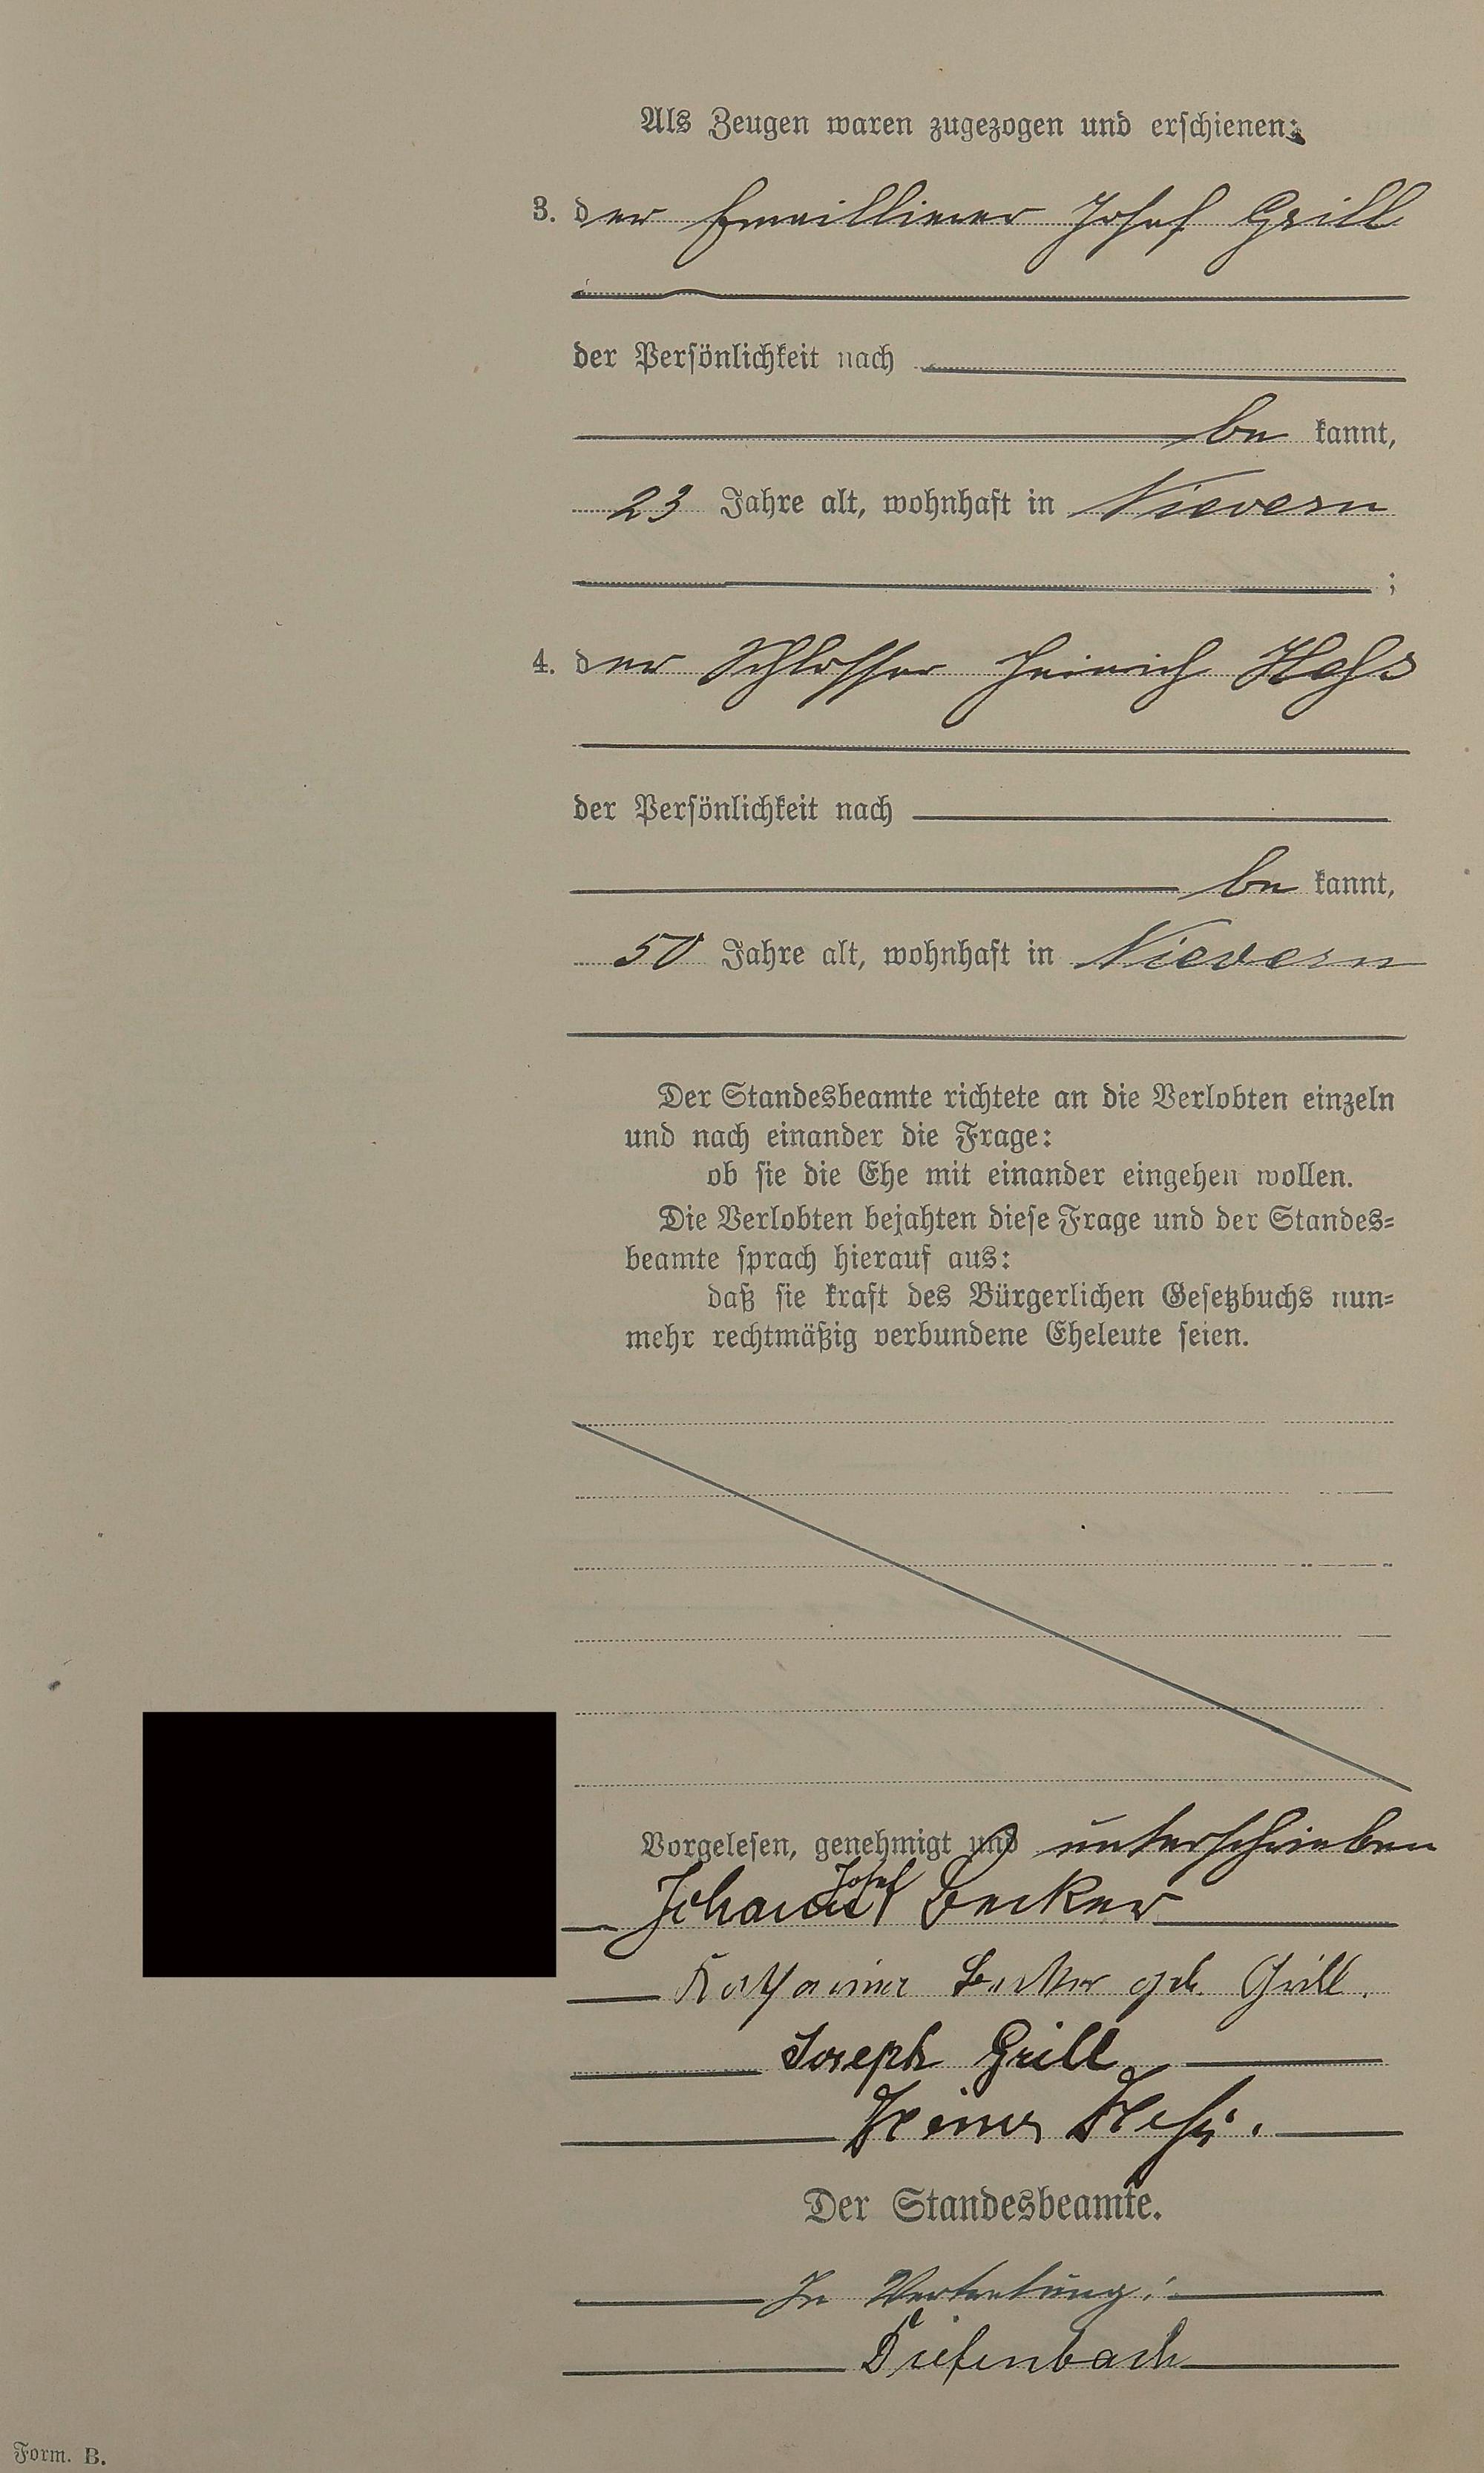 Als Zeugen waren zugezogen und erschienen:
3. der Emaillierer Josef Grill
der Persönlichkeit nach
be kannt,
23 Jahre alt, wohnhaft in Nievern
;
4. der Schlosser Heinrich Heß
der Persönlichkeit nach
be kannt,
50 Jahre alt, wohnhaft in Nievern
Der Standesbeamte richtete an die Verlobten einzeln
und nach einander die Frage:
ob sie die Ehe mit einander eingehen wollen.
Die Verlobten bejahten diese Frage und der Standes-
beamte sprach hierauf aus:
daß sie kraft des Bürgerlichen Gesetzbuchs nun-
mehr rechtmäßig verbundene Eheleute seien.
Vorgelesen, genehmigt und unterschrieben
Josef
Johann Becker
Katharina Becker geb. Grill.
Joseph Grill
Heinr Heß.
Der Standesbeamte.
In Vertretung:
Diefenbach
Form. B.